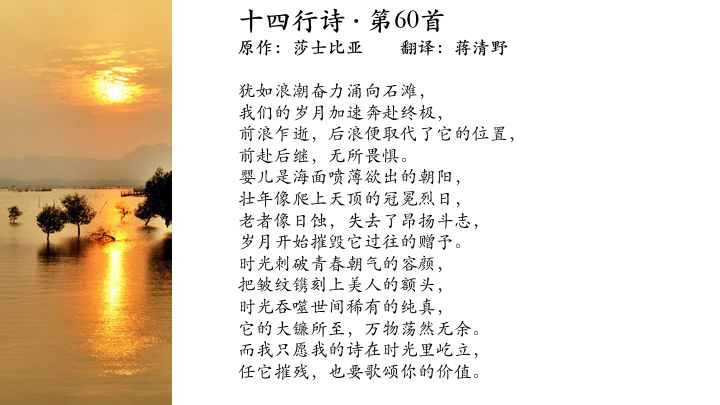 十四行诗·第60首
原作：莎士比亚 翻译：蒋清野
犹如浪潮奋力涌向石滩，
我们的岁月加速奔赴终极，
前浪乍逝，后浪便取代了它的位置，
前赴后继，无所畏惧。
婴儿是海面喷薄欲出的朝阳，
壮年像爬上天顶的冠冕烈日，
老者像日蚀，失去了昂扬斗志，
岁月开始摧毁它过往的赠予。
时光刺破青春朝气的容颜，
把皱纹镌刻上美人的额头，
时光吞噬世间稀有的纯真，
它的大镰所至，万物荡然无余。
而我只愿我的诗在时光里屹立，
任它摧残，也要歌颂你的价值。